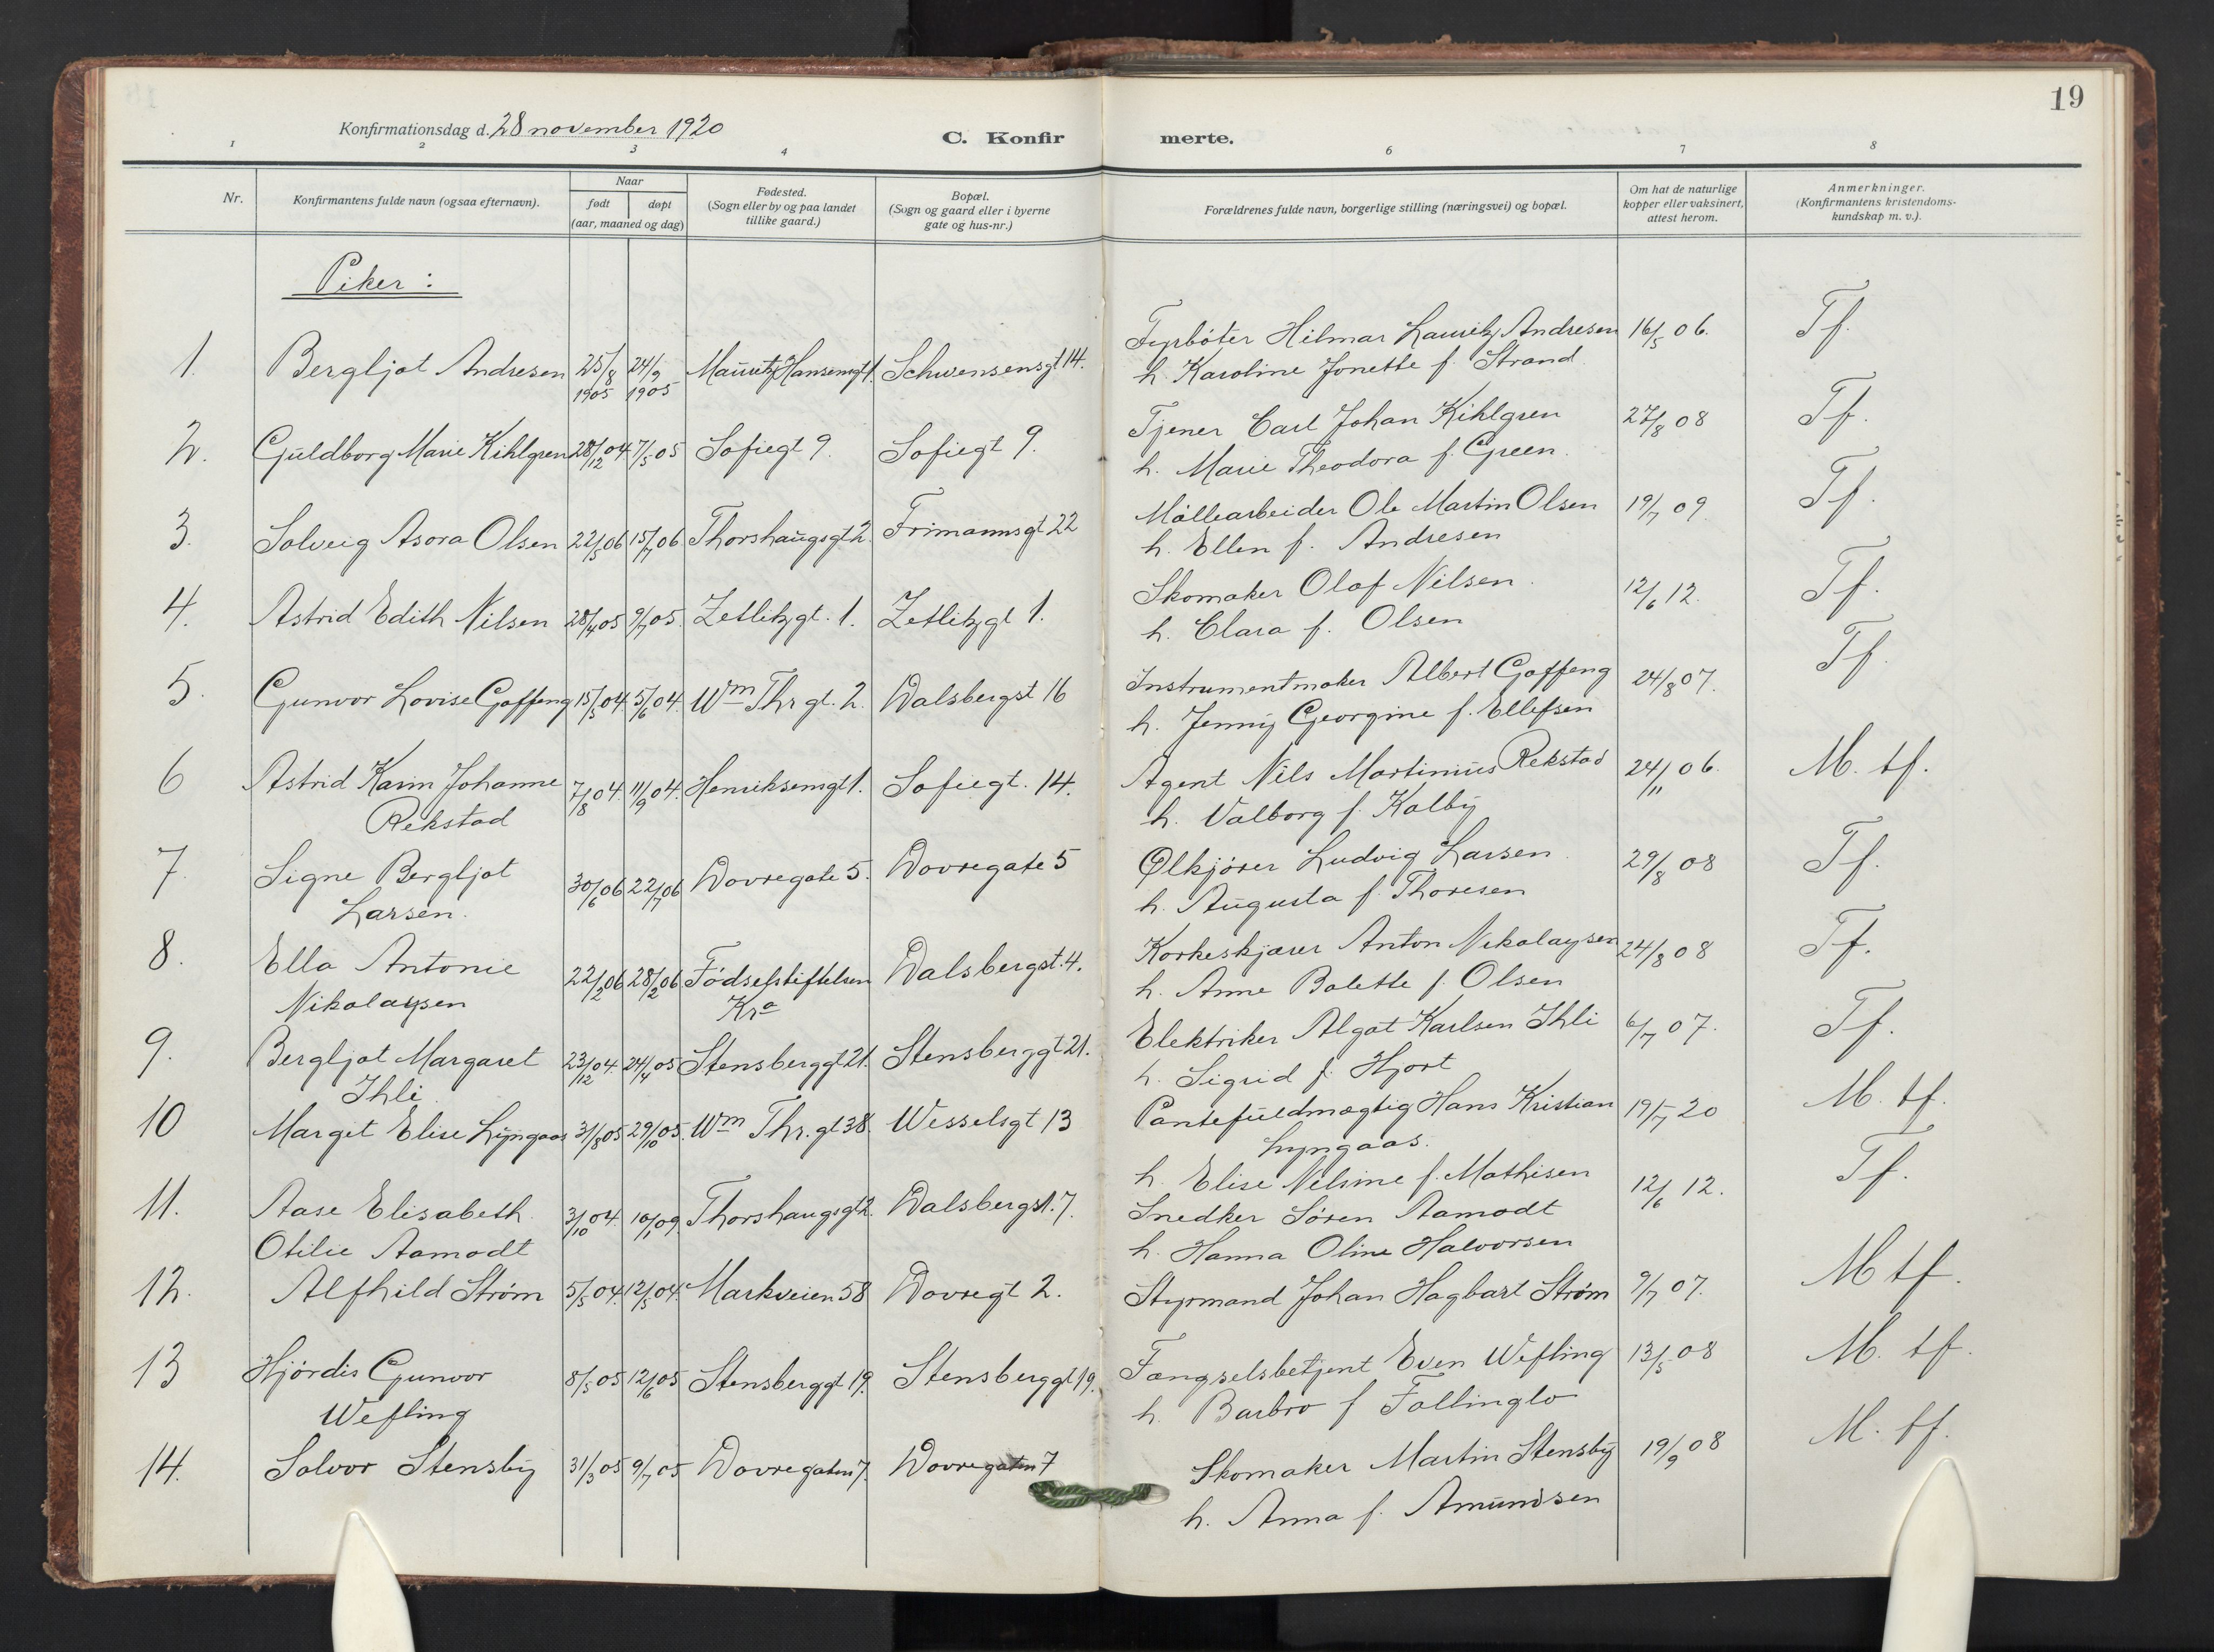 19
Konfirmationsdag d. 28 november 1920
C. Konfir merte.
1 2 3 4 6 7 8
Nr.
Konfirmantens fulde navn (ogsaa efternavn).
Naar
født døpt
(aar, maaned og dag)
Fødested.
(Sogn eller by og paa landet
tillike gaard.)
Bopæl.
(Sogn og gaard eller i byerne
gate og hus-nr.)
Forældrenes fulde navn, borgerlige stilling (næringsvei) og bopæl.
Om hat de naturlige
kopper eller vaksinert,
attest herom.
Anmerkninger.
(Konfirmantens kristendoms-
kundskap m. v.).
Piker :
1. Bergljot Andresen 25/8 1905 24/9 1905 Mauritz Hansensgt 1. Schwensensgt 14. Fyrbøter Hilmar Lauritz Andresen 16/5 06. Tf.
h. Karoline Jonette f. Strand
2. Guldborg Marie Kihlgren 28/12 04 7/5 05 Sofiegt 9. Sofiegt 9. Tjener Carl Johan Kihlgren 27/8 08 Tf.
h. Marie Theodora f. Green.
3. Solveig Asora Olsen 22/5 06 15/7 06 Thorshaugsgt 2. Frimannsgt 22 Møllearbeider Ole Martin Olsen 19/7 09. Tf.
h. Ellen f. Andresen
4. Astrid Edith Nilsen 28/4 05 9/7 05. Zetlitzgt. 1. Zetlitzgt 1. Skomaker Olaf Nilsen. 12/6 12. Tf.
h. Clara f. Olsen
5. Gunvor Lovise Gaffeng 15/5 04. 5/6 04. Wm Thr gt. 2. Dalsbergst 16 Instrumentmaker Albert Gaffeng 24/8 07. Tf.
h. Jenny Georgine f. Ellefsen
6 Astrid Karin Johanne 7/8 04. 11/9 04. Henriksensgt 1. Sofiegt. 14. Agent Nils Martinius Rekstad 24/11 06. M. tf.
Rekstad h. Valborg f. Kalby
7. Signe Bergljot 30/6 06 22/7 06 Dovregate 5. Dovregate 5 Ølkjører Ludvig Larsen 29/8 08 Tf.
Larsen. h. Augusta f. Thoresen
8. Ella Antonie 22/2 06 28/2 06 Fødselsstiftelsen Dalsbergst. 4. Korkeskjærer Anton Nikolaysen 24/8 08 Tf.
Nikolaysen Kra h. Anne Bolette f. Olsen
9. Bergljot Margaret 23/12 04. 24/4 05 Stensberggt 21. Stensberggt 21. Elektriker Algot Karlsen Ihli 6/7 07. Tf.
Ihli. h. Sigrid f. Hjort
10 Margit Elise Lyngaas 31/8 05 29/10 05. Wm Thr. gt 38. Wesselsgt 13 Pantefuldmægtig Hans Kristian 19/7 20 M. tf.
Lyngaas.
h. Elise Nilsine f. Mathisen
11. Aase Elisabeth 3/10 04. 10/1 09. Thorshaugsgt 2. Dalsbergst. 7. Snedker Søren Aamodt 12/6 12. Tf.
Otilie Aamodt h. Hanna Oline Halvorsen
12. Alfhild Strøm 5/5 04. 12/5 04. Markveien 58 Dovregt 2. Styrmand Johan Hagbart Strøm 9/7 07. M tf.
13 Hjørdis Gunvor 8/5 05 12/6 05 Stensberggt 19. Stensberggt 19. Fængselsbetjent Even Wefling 13/5 08 M. tf.
Wefling h. Barbro f Fallinglo
14. Solvor Stensby 31/3 05 9/7 05 Dovregaten 7. Dovregaten 7 Skomaker Martin Stensby 19/9 08 M. tf.
h. Anna f. Amundsen